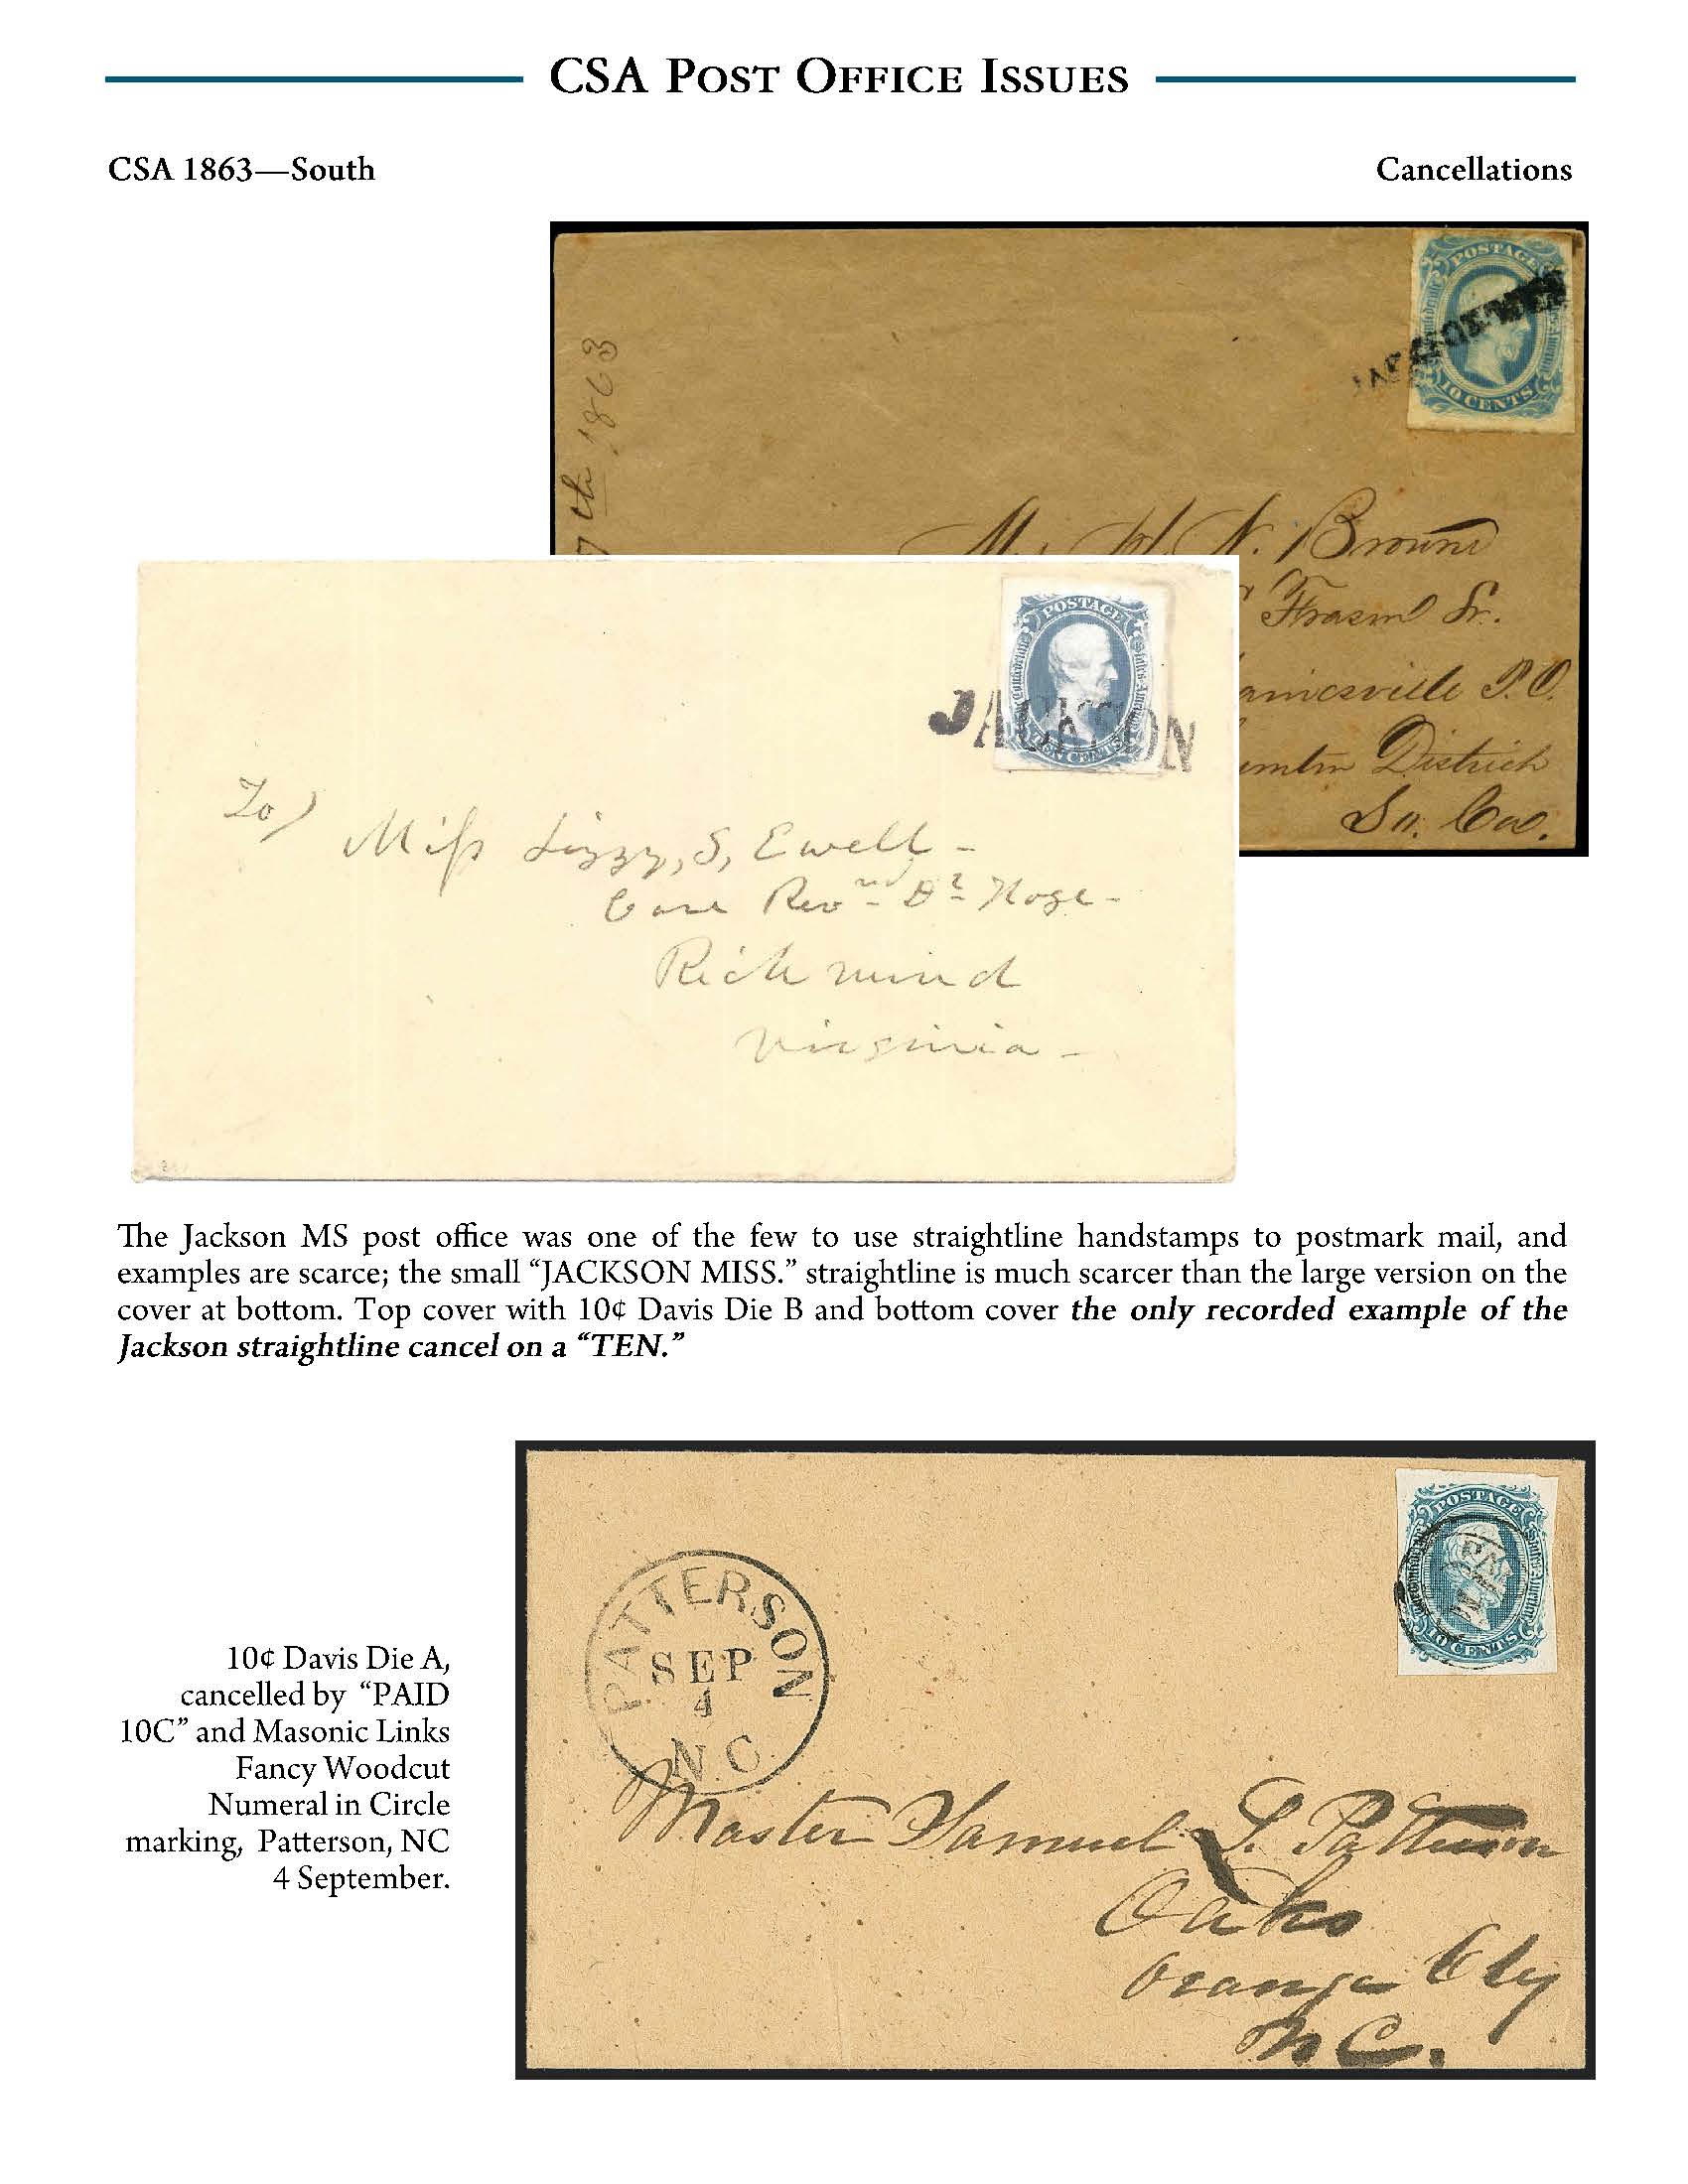 CSA Post Office Issues
CSA 1863—South
Cancellations
7th 1863
POSTAGE
10 CENTS
N. Brown
Frasier Sr.
P.O.
District
So. Ca.
POSTAGE
Confederate
States America
TEN CENTS
JACKSON
To
Miss Lizzy, S, Ewell -
Care Revnd Dr Hoge -
Richmond
Virginia -
The Jackson MS post office was one of the few to use straightline handstamps to postmark mail, and
examples are scarce; the small “JACKSON MISS.” straightline is much scarcer than the large version on the
cover at bottom. Top cover with 10¢ Davis Die B and bottom cover the only recorded example of the
Jackson straightline cancel on a “TEN.”
10¢ Davis Die A,
cancelled by “PAID
10C” and Masonic Links
Fancy Woodcut
Numeral in Circle
marking, Patterson, NC
4 September.
POSTAGE
10 CENTS
PATTERSON
SEP
4
N.C.
Master Samuel L. Patterson
Oaks
Orange Cty
N C.